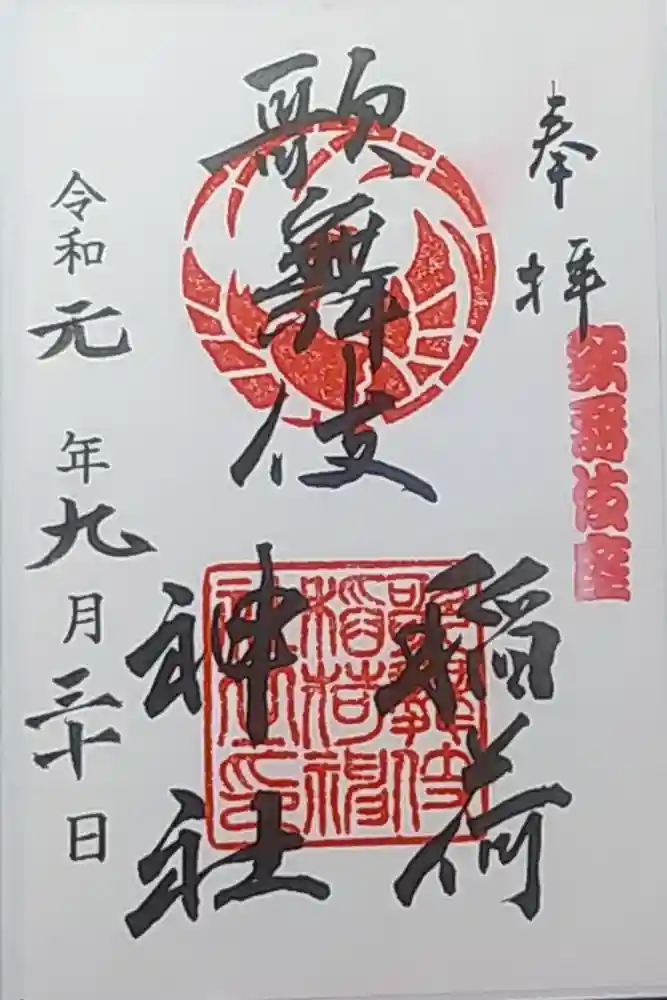 奉拝
歌舞伎座
歌舞伎
稲荷
神社
歌舞伎
稲荷神
社之印
令和元年九月三十日